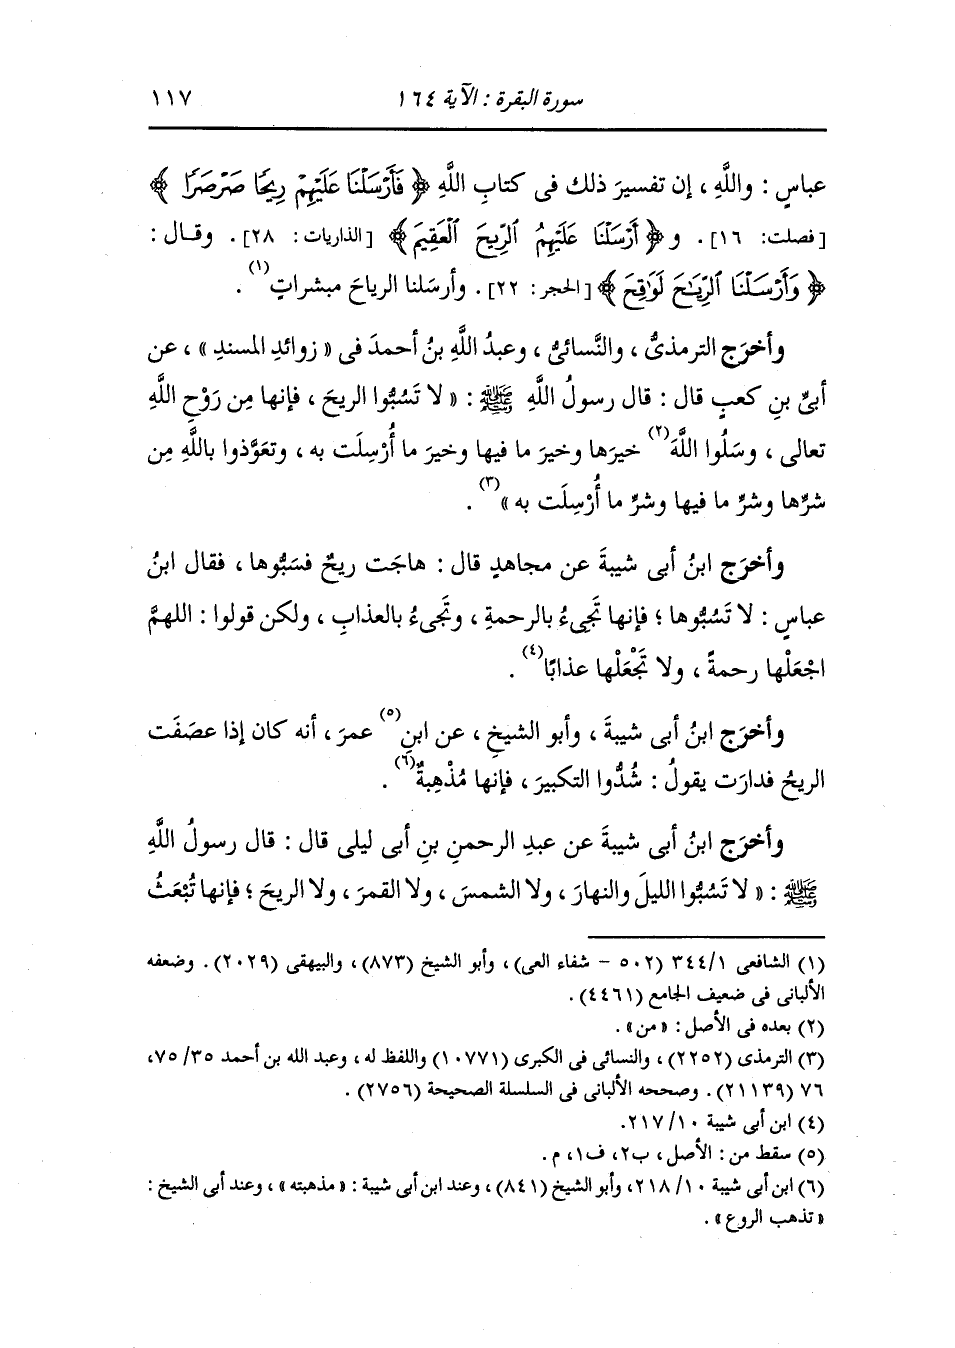 سورة البقرة : الآية ١٦٤ ١١٧
عباسٍ : واللَّهِ ، إن تفسيرَ ذلك فى كتابِ اللَّهِ ﴿ فَأَرْسَلْنَا عَلَيْهِمْ رِيحًا صَرْصَرًا ﴾
[فصلت: ١٦] . و ﴿ أَرْسَلْنَا عَلَيْهِمُ ٱلرِّيحَ ٱلْعَقِيمَ ﴾ [الذاريات: ٢٨] . وقـال :
﴿ وَأَرْسَلْنَا ٱلرِّيَٰحَ لَوَٰقِحَ ﴾ [الحجر: ٢٢] . وأرسَلنا الرياحَ مبشراتٍ(١) .
وأخرَج الترمذىُّ ، والنَّسائىُّ ، وعبدُ اللَّهِ بنُ أحمدَ فى « زوائدِ المسندِ » ، عن
أبىِّ بنِ كعبٍ قال : قال رسولُ اللَّهِ ﷺ : « لا تَسُبُّوا الريحَ ، فإنها مِن رَوْحِ اللَّهِ
تعالى ، وسَلُوا اللَّهَ(٢) خيرَها وخيرَ ما فيها وخيرَ ما أُرْسِلَت به ، وتعَوَّذوا باللَّهِ مِن
شرِّها وشرِّ ما فيها وشرِّ ما أُرْسِلَت به »(٣) .
وأخرَج ابنُ أبى شيبةَ عن مجاهدٍ قال : هاجَت ريحٌ فسَبُّوها ، فقال ابنُ
عباسٍ : لا تَسُبُّوها ؛ فإنها تَجِىءُ بالرحمةِ ، وتَجىءُ بالعذابِ ، ولكن قولوا : اللهمَّ
اجْعَلْها رحمةً ، ولا تَجْعَلْها عذابًا(٤) .
وأخرَج ابنُ أبى شيبةَ ، وأبو الشيخِ ، عن ابنِ(٥) عمرَ ، أنه كان إذا عصَفَت
الريحُ فدارَت يقولُ : شُدُّوا التكبيرَ ، فإنها مُذْهِبةٌ(٦) .
وأخرَج ابنُ أبى شيبةَ عن عبدِ الرحمنِ بنِ أبى ليلى قال : قال رسولُ اللَّهِ
ﷺ : « لا تَسُبُّوا الليلَ والنهارَ ، ولا الشمسَ ، ولا القمرَ ، ولا الريحَ ؛ فإنها تُبْعَثُ
(١) الشافعى ٣٤٤/١ (٥٠٢ - شفاء العى) ، وأبو الشيخ (٨٧٣) ، والبيهقى (٢٠٢٩) . وضعفه
الألبانى فى ضعيف الجامع (٤٤٦١) .
(٢) بعده فى الأصل : « من » .
(٣) الترمذى (٢٢٥٢) ، والنسائى فى الكبرى (١٠٧٧١) واللفظ له ، وعبد الله بن أحمد ٧٥/٣٥،
٧٦ (٢١١٣٩) . وصححه الألبانى فى السلسلة الصحيحة (٢٧٥٦) .
(٤) ابن أبى شيبة ٢١٧/١٠.
(٥) سقط من : الأصل ، ب٢، ف١، م .
(٦) ابن أبى شيبة ٢١٨/١٠، وأبو الشيخ (٨٤١) ، وعند ابن أبى شيبة : « مذهبته » ، وعند أبى الشيخ :
« تذهب الروع » .